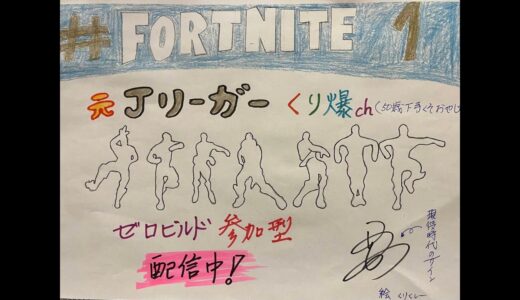 #FORTNITE 1
元Jリーガー くり爆ch(50歳下手くそおやじ
ゼロビルド 参加型
配信中!
現役時代のサイン
絵 くりくりー